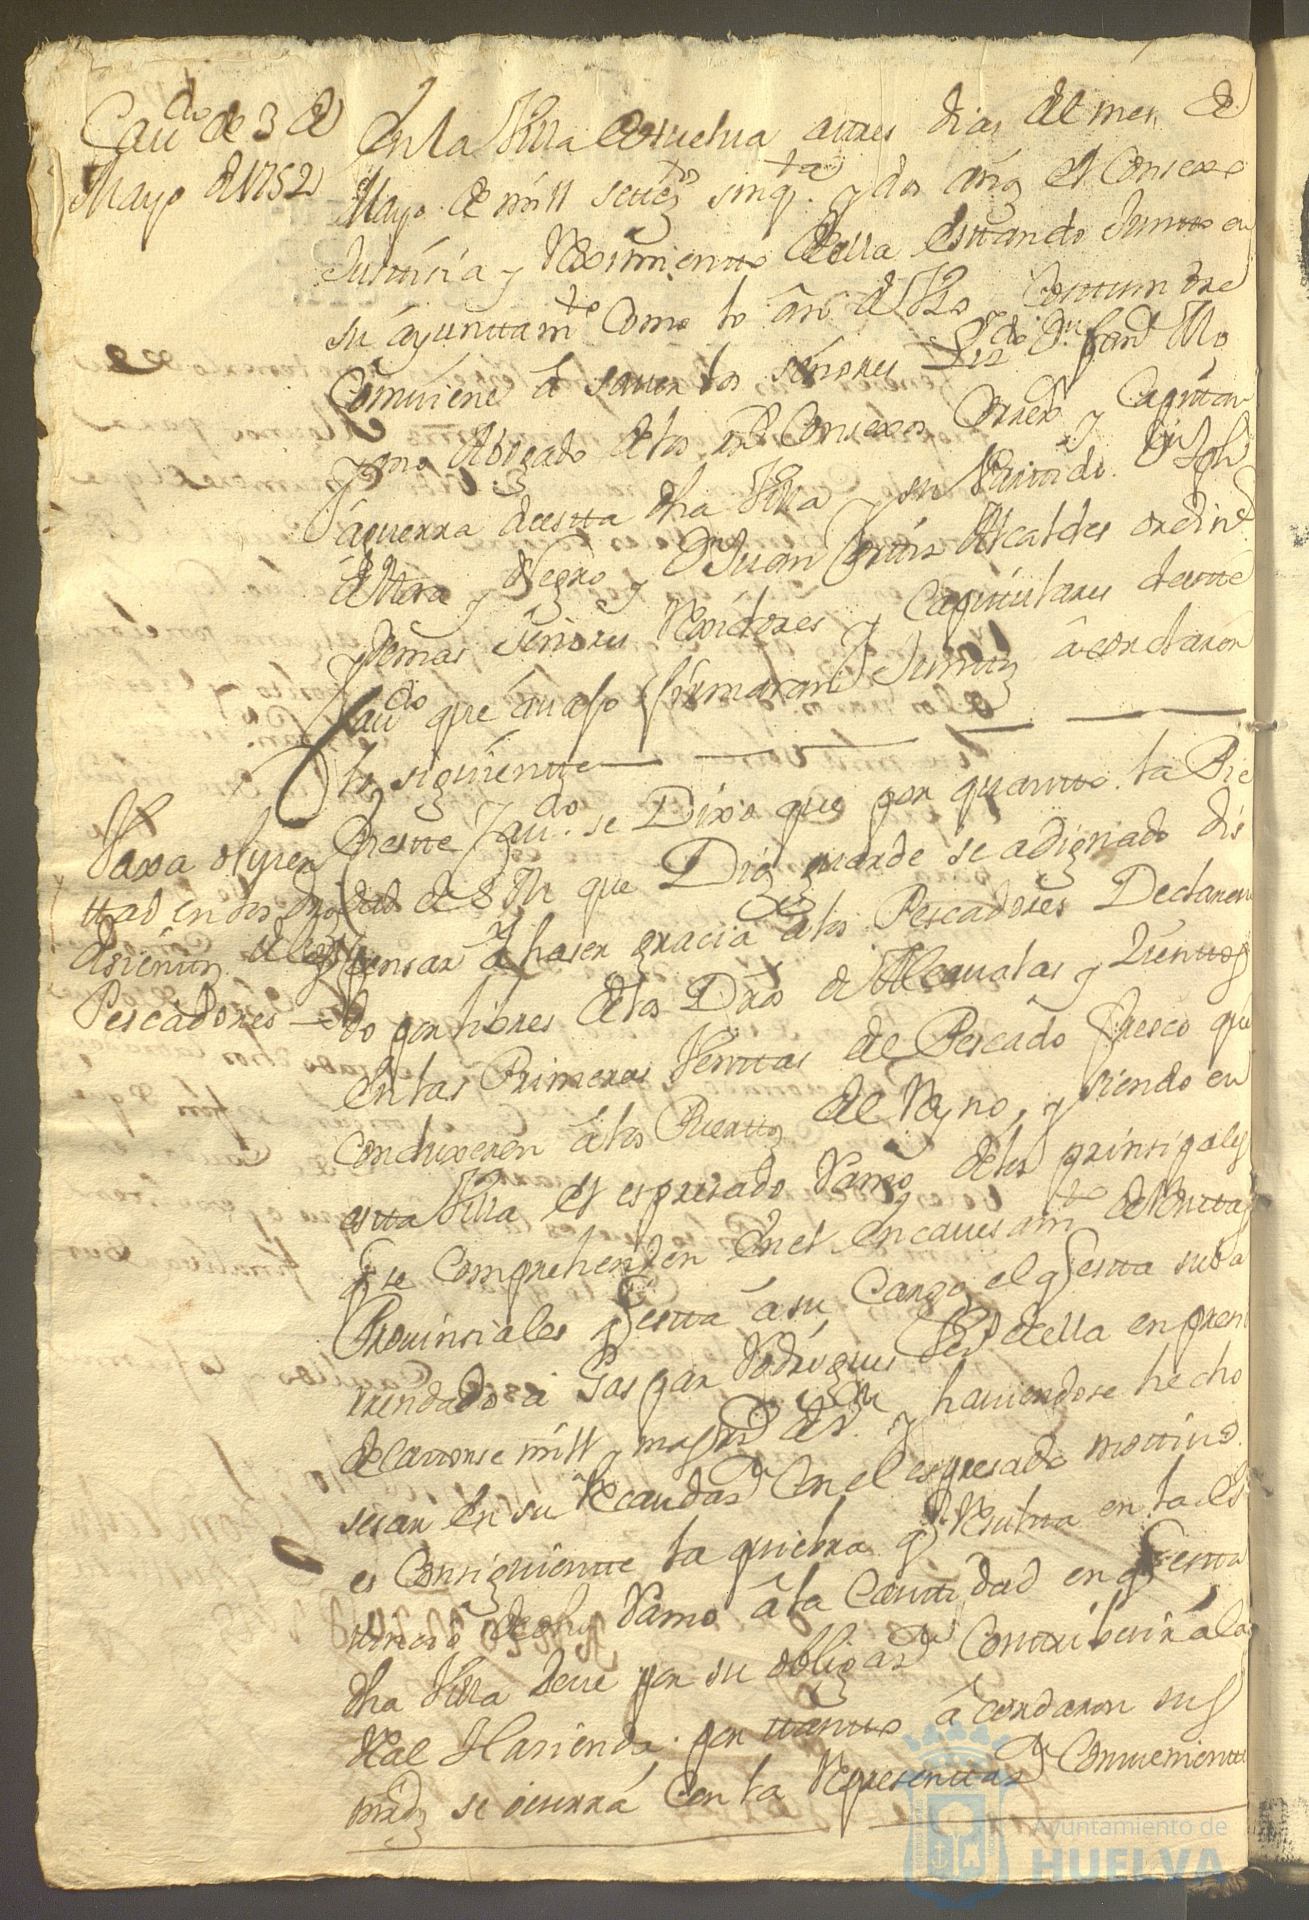 Cau.do de 3 de
Mayo de 1752
En la Villa de Huelua a tres dias del mes de
Mayo de mill setez.os sinq.ta y dos años el Consexo
Justisia y Reximiento della estando Junto en
su ayuntam.to como lo an de Vso y Costumbre
Comviene á sauer los señores Liz.do D.n
Abogado de los R.s Consexos Correx.r y Capitan
á guerra de esta dha Villa y su Partido D.n Jph
de Mora y Negro y D.n Juan Cortes Alcaldes ordin.s
y demas señores Rexidores y Capitulares de este
Cau.do que auajo firmaran Juntos acordaron
lo siguiente
Vaxa o quien
ttad en los dros
de sientos de los
Pescadores
En este Cau.do se Dixo que por quanto la Pie
dad de S M que Dios guarde se a dignado dis
pensar á haser gracia á los Pescadores Declaran
do por libres de los Dros de Alcaualas y Zientos
en las Primeras Ventas de Pescado fresco que
conduxeren á los Puertos del Reyno, y siendo en
esta Villa el espresado Ramo de los prinsipales
q se comprehenden en el encauesam.to de Rentas
Prouinsiales q esta á su Cargo el q esta suba
rrendado a Gaspar Rodrigues Vez.o della en presio
de Catorse mill y mas R.s de V.n y hauiendose hecho
sesar en su Recaudaz.n Con el espresado motiuo
es Consiguiente la quiebra q Resulta en la es
de dho Ramo á la Cantidad en q esta
dha Villa deue por su obligaz.n Contribuir á la
Real Hasienda. por tanto acordaron sus
mrds se ocurra con la Representaz.n Conueniente
Ayuntamiento de
HUELVA